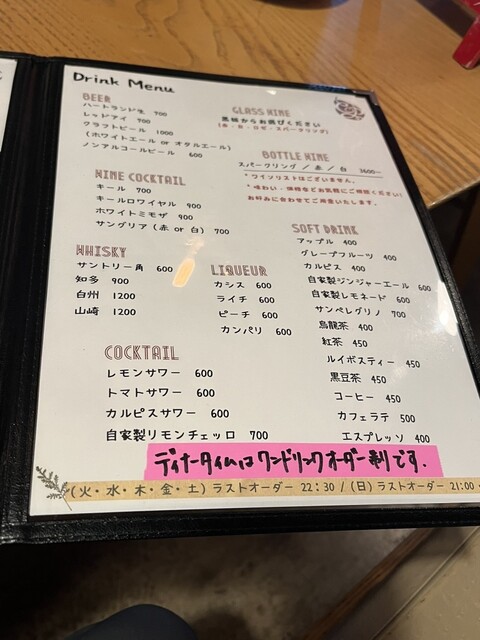 Drink Menu
BEER
ハートランド生 700
レッドアイ 700
クラフトビール 1000
(ホワイトエール or オタルエール)
ノンアルコールビール 600
GLASS WINE
黒板からお選びください。
(赤・白・ロゼ・スパークリング)
BOTTLE WINE
スパークリング / 赤 / 白 3600~
*ワインリストはございません。
*味わい・価格などお気軽にご相談ください!
お好みに合わせてご用意いたします。
WINE COCKTAIL
キール 700
キールロワイヤル 900
ホワイトミモザ 900
サングリア (赤 or 白) 700
WHISKY
サントリー角 600
知多 900
白州 1200
山崎 1200
LIQUEUR
カシス 600
ライチ 600
ピーチ 600
カンパリ 600
SOFT DRINK
アップル 400
グレープフルーツ 400
カルピス 400
自家製ジンジャーエール 600
自家製レモネード 600
サンペレグリノ 700
烏龍茶 400
紅茶 450
ルイボスティー 450
黒豆茶 450
コーヒー 450
カフェラテ 500
エスプレッソ 400
COCKTAIL
レモンサワー 600
トマトサワー 600
カルピスサワー 600
自家製リモンチェッロ 700
ディナータイムはワンドリンクオーダー制です.
(火・水・木・金・土) ラストオーダー 22:30 / (日) ラストオーダー 21:00